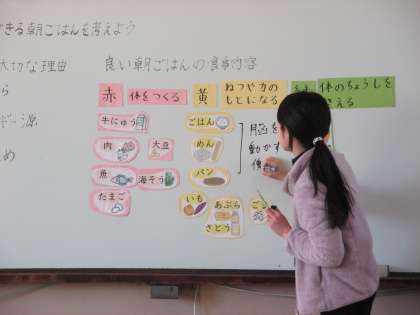 できる朝ごはんを考えよう
大切な理由
良い朝ごはんの食事内容
赤
体をつくる
黄
ねつや力の
もとになる
体のちょうしを
牛にゅう
ごはん
肉
大豆
めん
魚
海そう
パン
たまご
いも
あぶら
さとう
脳を
動かす
源
め